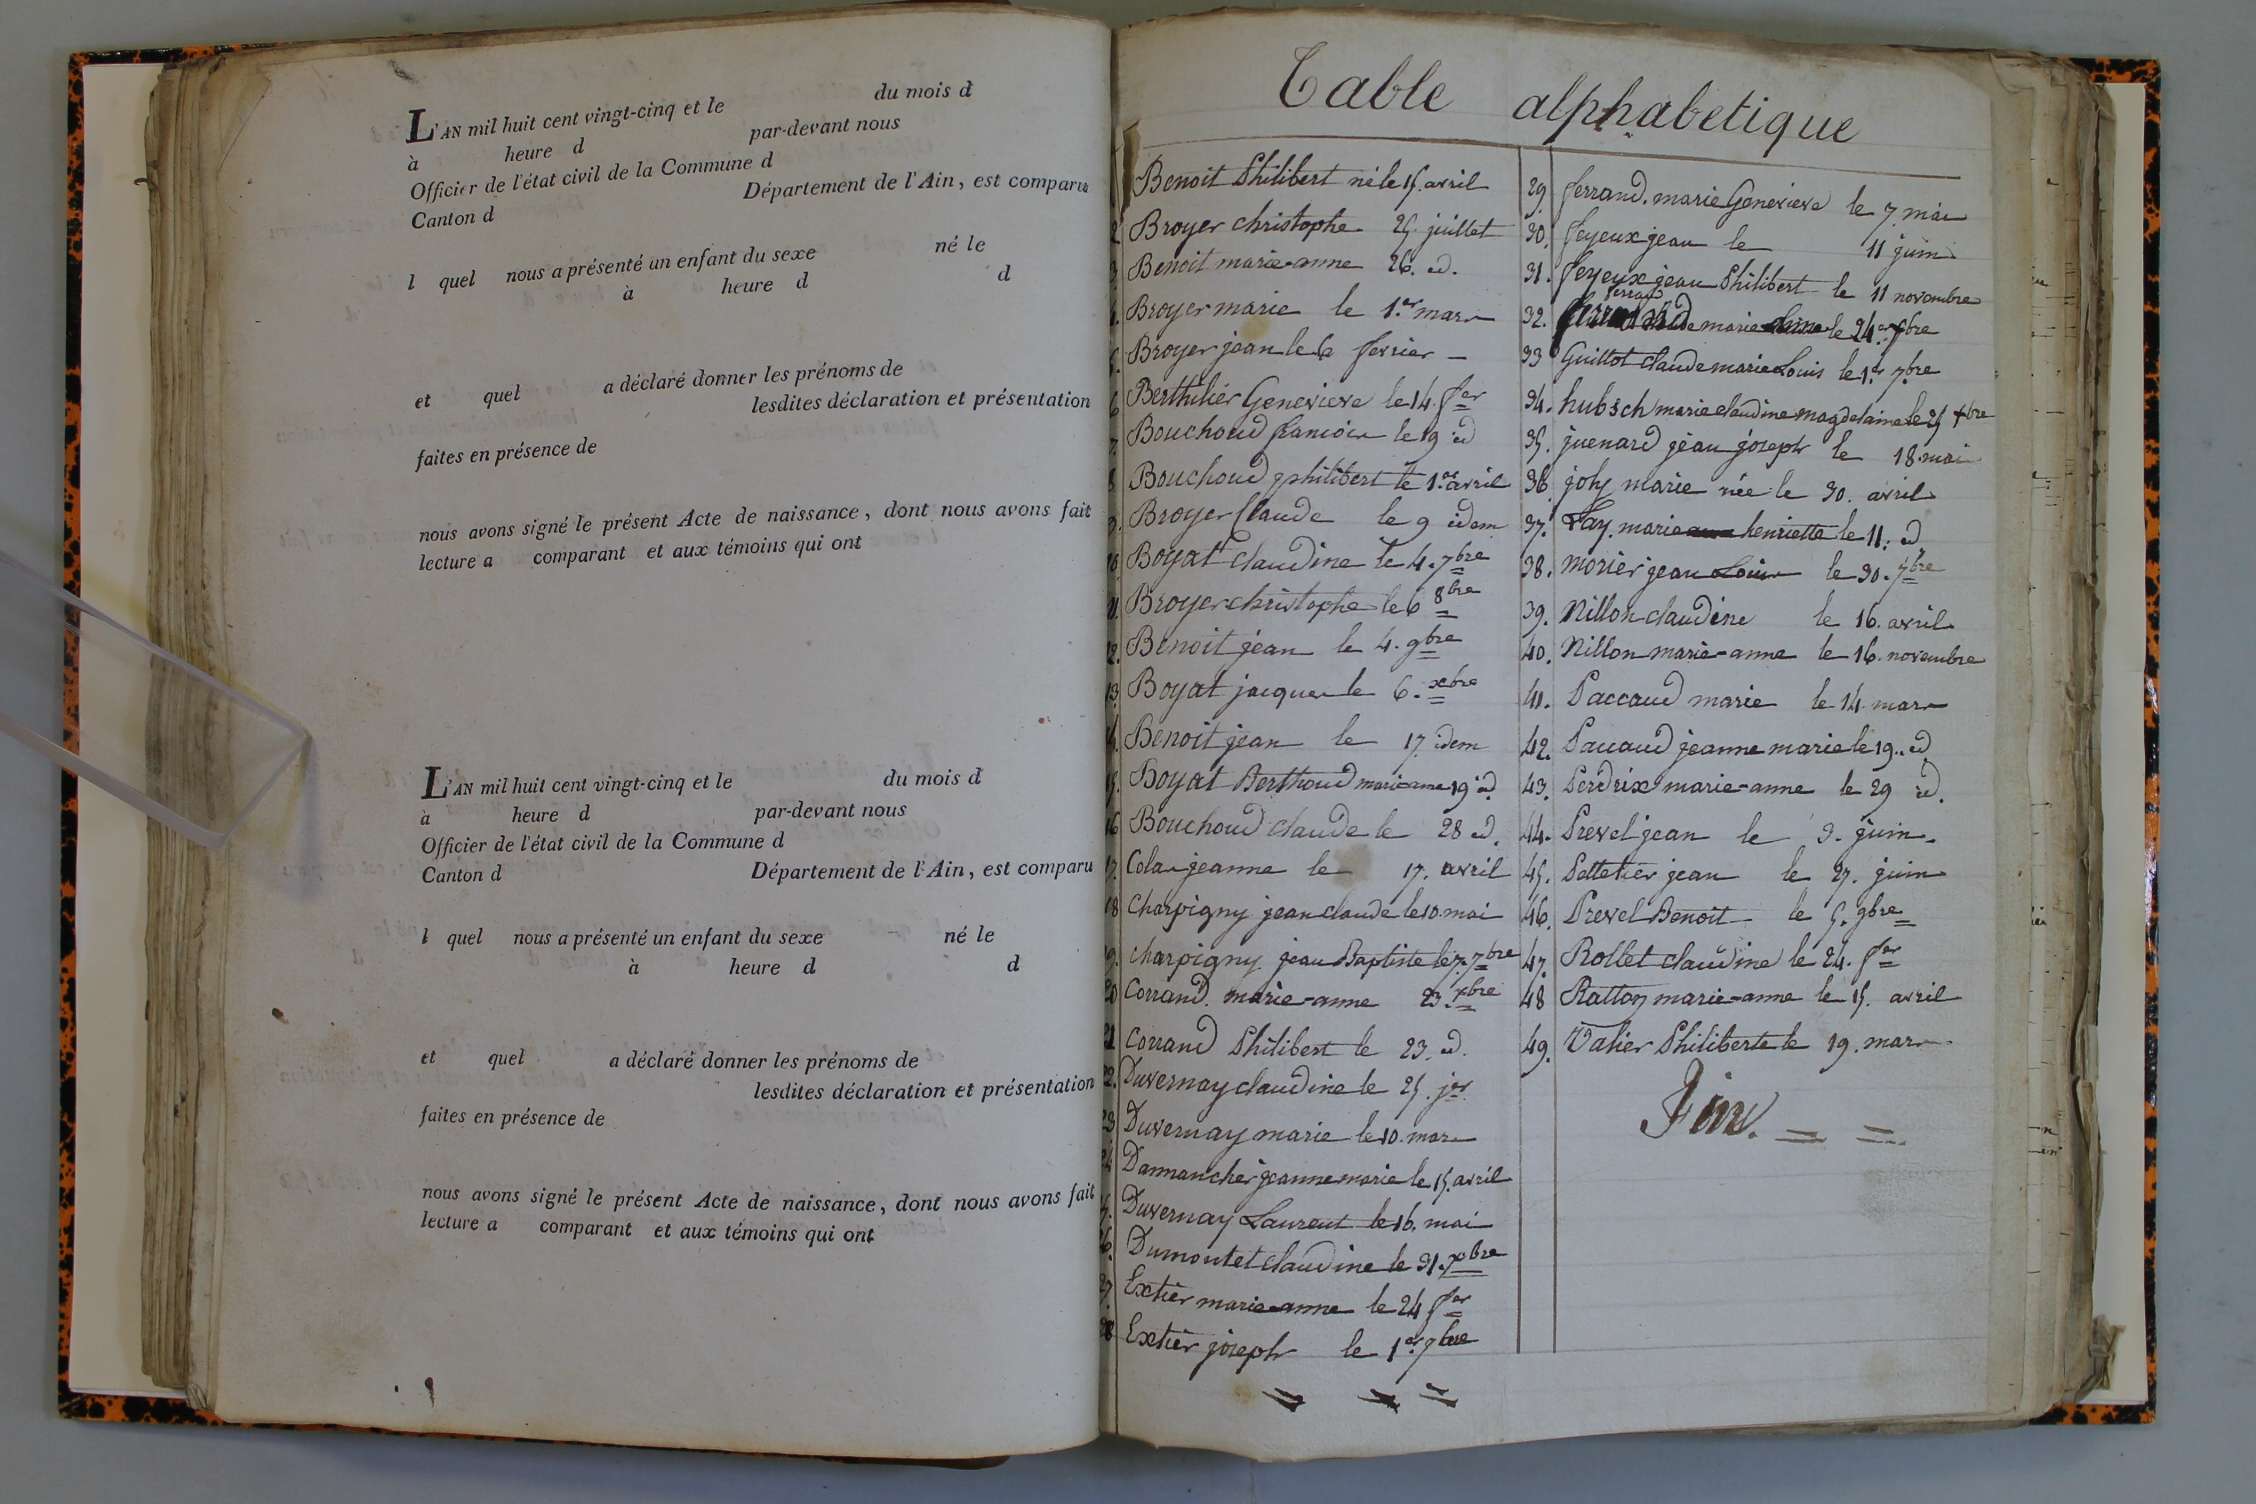 L'AN mil huit cent vingt-cinq et le du mois d
à heure d par-devant nous
Officier de l'état civil de la Commune d
Canton d Département de l'Ain, est comparu
l quel nous a présenté un enfant du sexe né le
à heure d d
et quel a déclaré donner les prénoms de
lesdites déclaration et présentation
faites en présence de
nous avons signé le présent Acte de naissance, dont nous avons fait
lecture a comparant et aux témoins qui ont
L'AN mil huit cent vingt-cinq et le du mois d
à heure d par-devant nous
Officier de l'état civil de la Commune d
Canton d Département de l'Ain, est comparu
l quel nous a présenté un enfant du sexe né le
à heure d d
et quel a déclaré donner les prénoms de
lesdites déclaration et présentation
faites en présence de
nous avons signé le présent Acte de naissance, dont nous avons fait
lecture a comparant et aux témoins qui ont
Table alphabetique
Benoit Philibert né le 15. avril
2 Broyer christophe 25. juillet
3 Benoit marie-anne 26. id.
4. Broyer marie le 1.er mars
5. Broyer jean le 6 fevrier
6 Berthilier Genevieve le 14. fer
7. Bouchoud francois le 19 id
8 Bouchoud philibert le 1.er avril
9. Broyer Claude le 9 idem
10. Boyat claudine le 4. 7bre
11. Broyer christophe le 6 8bre
12. Benoit jean le 4. 9bre
13. Boyat jacques le 6. xbre
14. Benoit jean le 17. idem
15. Boyat Berthoud marie-anne 19 id.
16 Bouchoud claude le 28 id.
17. Colas jeanne le 17. avril
18 Charpigny jean claude le 10 mai
19. charpigny jean Baptiste le 7. 7bre
20 Corrand. marie-anne 23. xbre
21 Corrand Philibert le 23. id.
22. Duvernay claudine le 25. jer
23 Duvernay marie le 10. mars
24 Dannancher jeanne marie le 15. avril
25. Duvernay Laurent le 16. mai
26. Dumontet claudine le 31. xbre
27. Extier marie-anne le 24 fer
28 Extier joseph le 1er 9bre
29. ferrand. marie Genevieve le 7. mai
30. feyeux jean le 11 juin
31. feyeux jean Philibert le 11 novembre
ferrand
32. marie le 24
33 Guillot claude marie Louis le 1.er 7.bre
34. hubsch marie claudine magdelaine le 25 xbre
35. juenard jean joseph le 18. mai
36. joly marie née le 30. avril
37. Lay. marie henriette le 11. id
38. morier jean Louis le 30. 7bre
39. Nillon claudine le 16. avril
40. Nillon marie-anne le 16. novembre
41. Paccaud marie le 14 mars
42. Paccaud jeanne marie le 19. id
43. Perdrix marie-anne le 29 id.
44. Prevel jean le 3. juin
45. Pelletier jean le 27. juin
46. Prevel Benoit le 5. 9bre
47. Rollet claudine le 24. fer
48 Ratton marie-anne le 15. avril
49. Valier Philiberte le 19. mars
Fin.